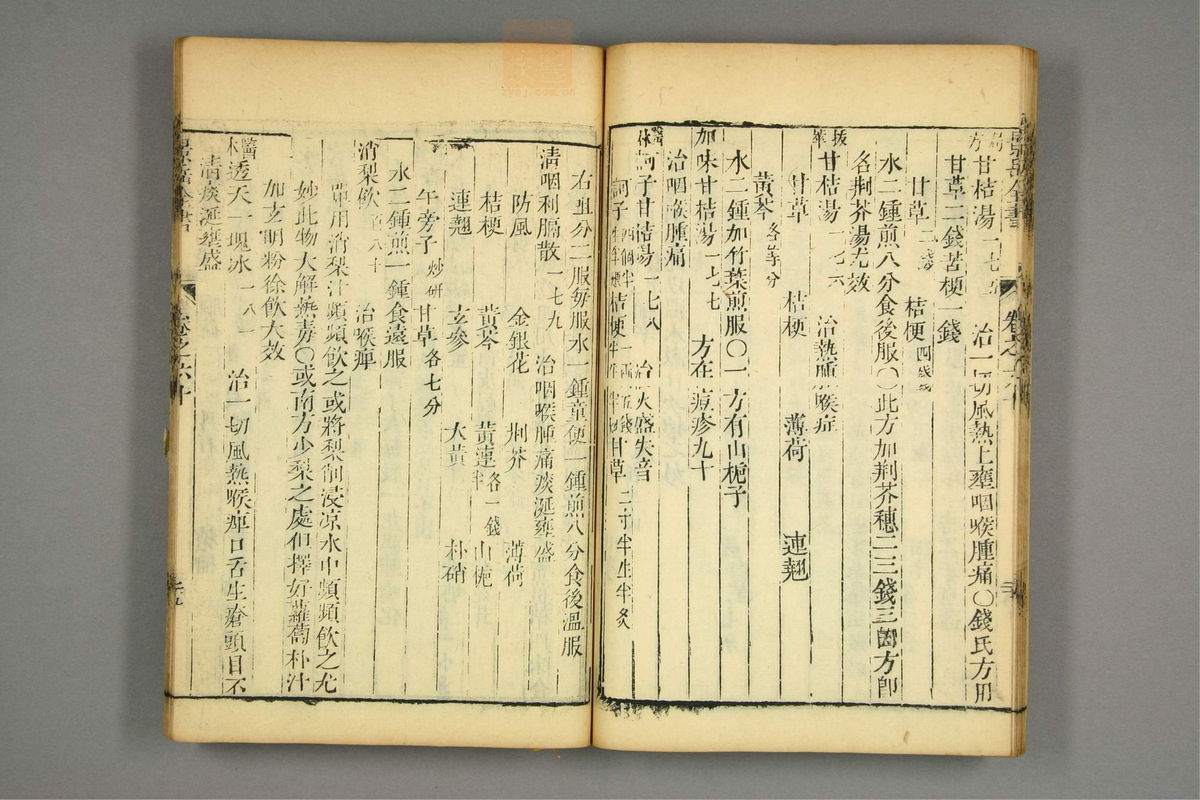 甘桔湯一七五 治一切風熱上壅咽喉腫痛○錢氏方用
甘草二錢苦梗一錢
甘草二錢 桔梗四錢
水二鍾煎八分食後服○此方加荆芥穗二三錢三因方卽
名荆芥湯尤效
拔萃 甘桔湯一七六 治熱腫喉症
甘草 桔梗 薄荷 連翹
黃芩各等分
水二鍾加竹葉煎服○一方有山梔子
加味甘桔湯一七七 方在痘疹九十
治咽喉腫痛
醫林 訶子甘桔湯一七八 治火盛失音
訶子四個半生半煨 桔梗一兩五錢半生半炒 甘草二寸半生半炙
右㕮分二服每服水一鍾童便一鍾煎八分食後溫服
清咽利膈散一七九 治咽喉腫痛痰涎壅盛
防風 金銀花 荆芥 薄荷
桔梗 黃芩 黃連各一錢半 山梔
連翹 玄參 大黃 朴硝
牛旁子炒研 甘草各七分
水二鍾煎一鍾食遠服
消梨飲百八十 治喉痺
單用消梨汁頻頻飲之或將梨削浸凉水中頻頻飲之尤
妙此物大解熱毒○或南方少梨之處但擇好蘿蔔朴汁
加玄明粉徐飲大效
醫林 透天一塊冰一八一 治一切風熱喉痺口舌生瘡頭目不
清痰涎壅盛
景岳全書 卷之六十